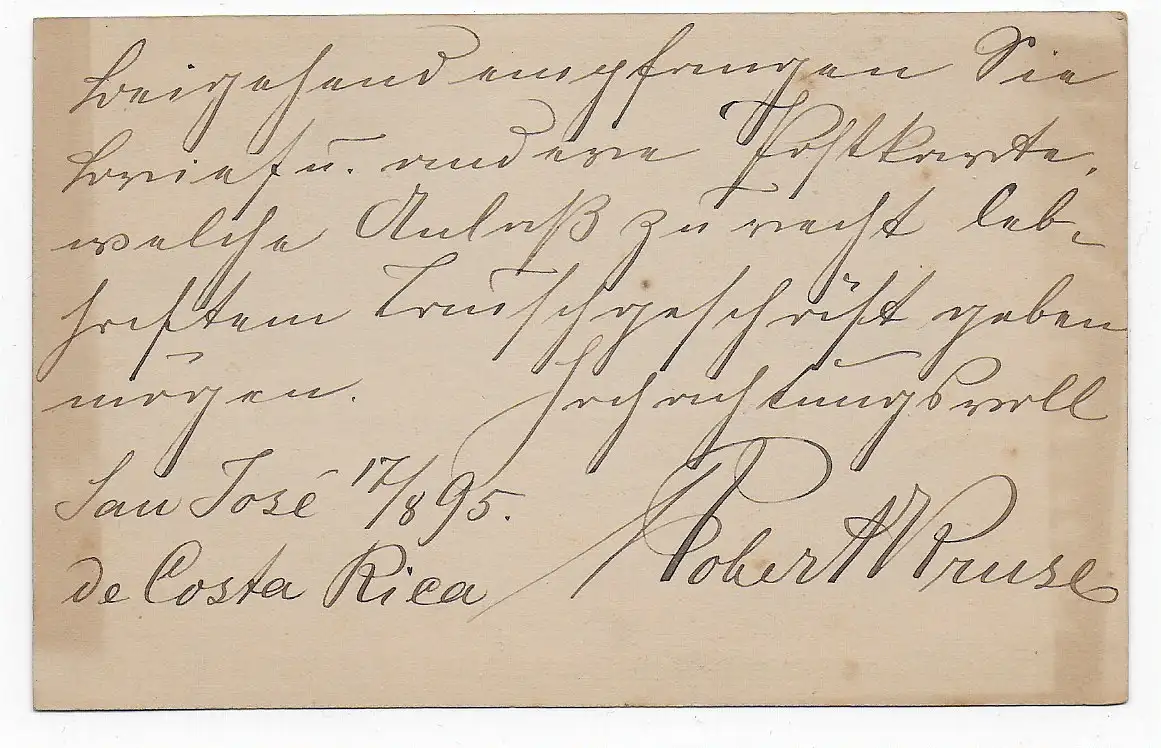 beigehend empfangen Sie
Brief u. andere Postkarte,
welche Anlaß zu recht leb-
haftem Tauschgeschäft geben
mögen. Hochachtungsvoll
San José 17/8 95. Robert Kruse
de Costa Rica